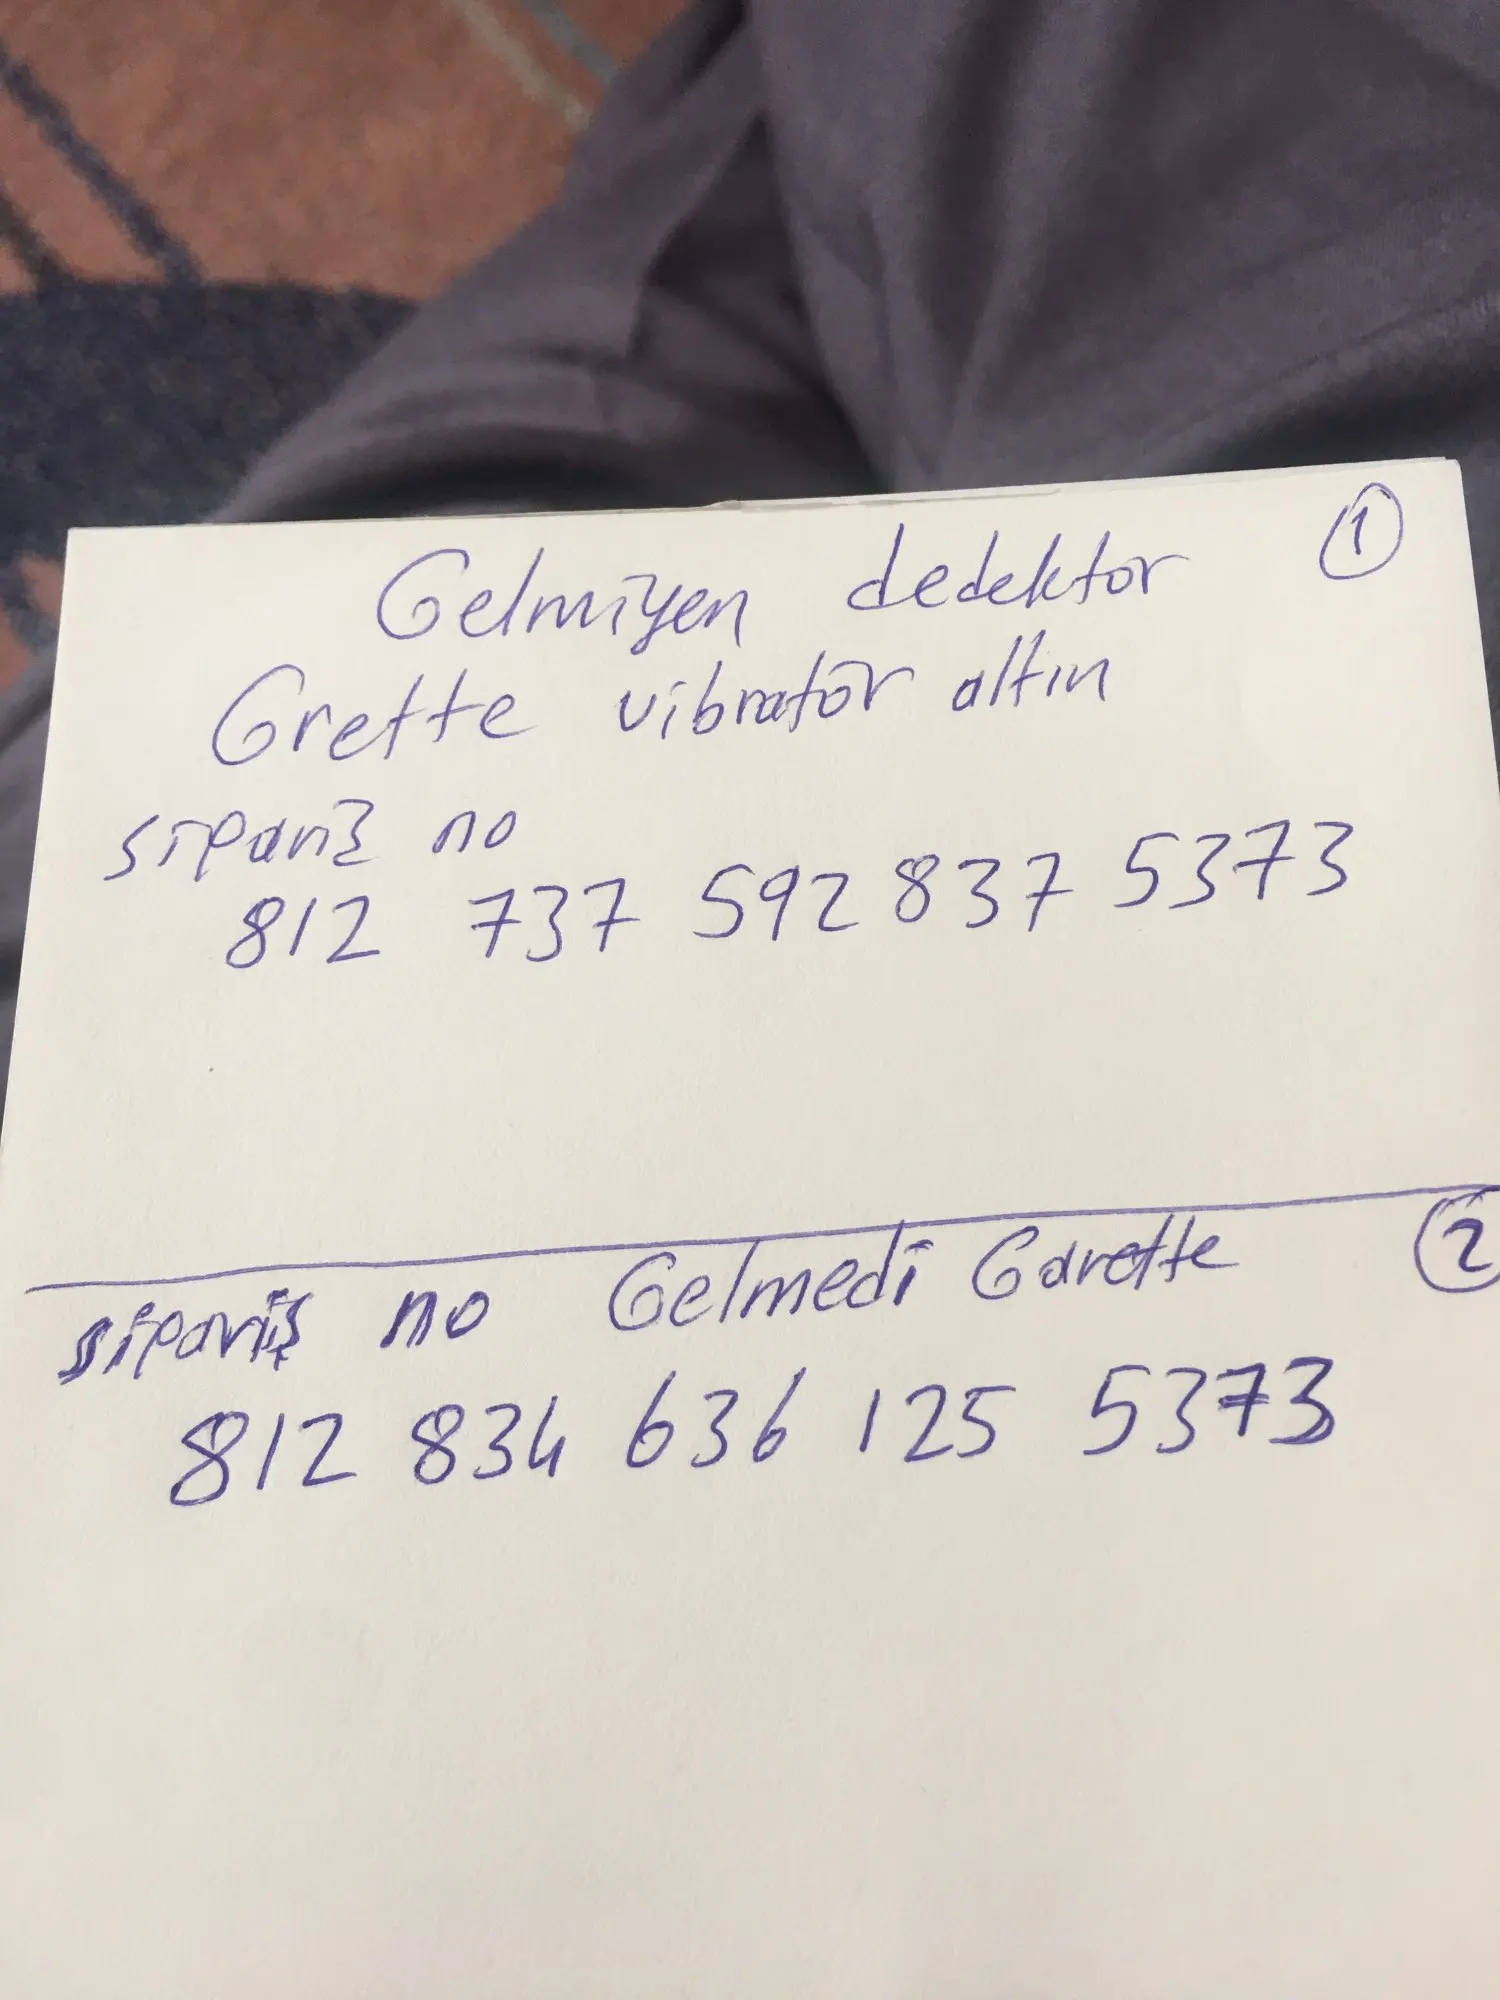 Gelmiyen dedektor ①
Grette vibratör altın
sipariş no
812 737 592 837 5373
sipariş no Gelmedi Garette ②
812 834 636 125 5373